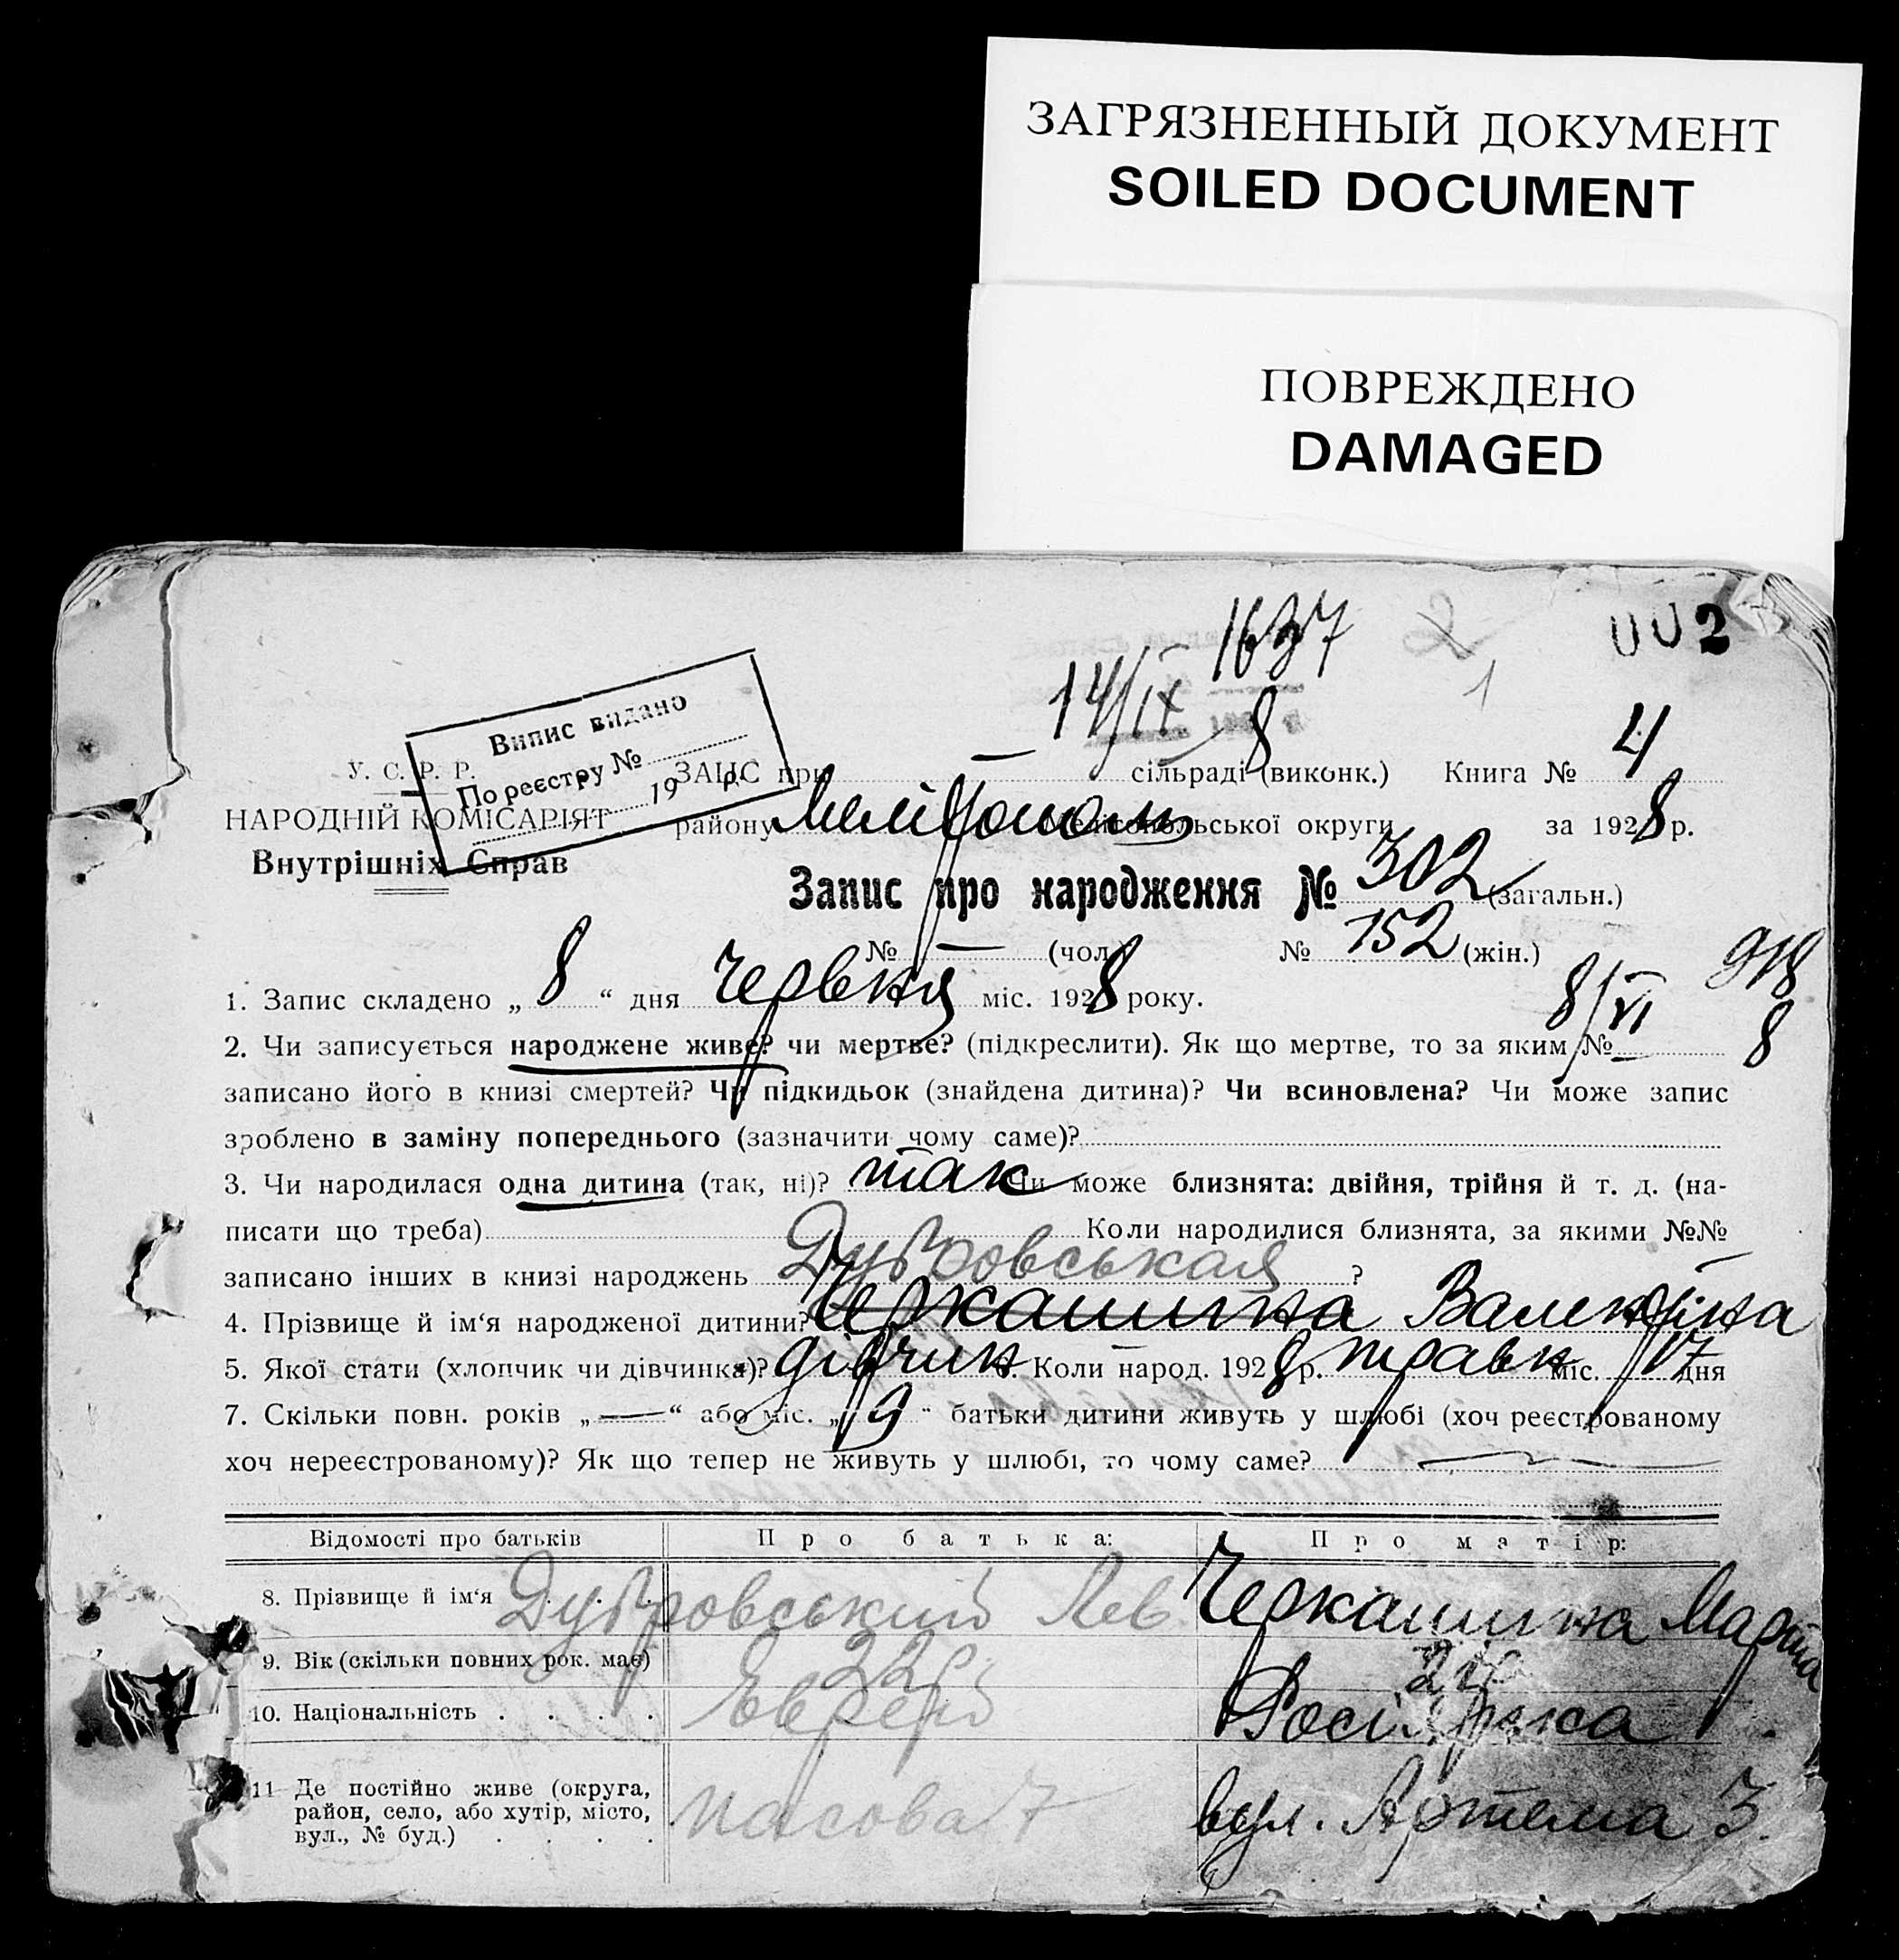 ЗАГРЯЗНЕННЫЙ ДОКУМЕНТ
SOILED DOCUMENT
ПОВРЕЖДЕНО
DAMAGED
1637 2 002
14/IX 8 1
Випис видано
По реєстру №
19 р.
У. С. Р. Р. ЗАЦС при — сільраді (виконк.) Книга № 4
НАРОДНІЙ КОМІСАРІЯТ району Мелітополь Мелітопольської округи за 1928 р.
Внутрішніх Справ
Запис про народження № 302 (загальн.)
№ — (чол.) № 152 (жін.)
918
8/VI 8
1. Запис складено „ 8 “ дня червня міс. 1928 року.
2. Чи записується народжене живе? чи мертве? (підкреслити). Як що мертве, то за яким №
записано його в книзі смертей? Чи підкидьок (знайдена дитина)? Чи всиновлена? Чи може запис
зроблено в заміну попереднього (зазначити чому саме)?
3. Чи народилася одна дитина (так, ні)? так Чи може близнята: двійня, трійня й т. д. (на-
писати що треба) Коли народилися близнята, за якими №№
записано інших в книзі народжень ?
Дубровськая
4. Прізвище й ім‘я народженої дитини? Черкашина Валентіна
5. Якої стати (хлопчик чи дівчинка)? дівчин 6. Коли народ. 1928 р. травн міс. 17 дня
7. Скільки повн. років „ — “ або міс. „ 9 “ батьки дитини живуть у шлюбі (хоч реєстрованому
хоч нереєстрованому)? Як що тепер не живуть у шлюбі, то чому саме? —
Відомості про батьків Про батька: Про матір:
8. Прізвище й ім‘я Дубровський Лев Черкашина Марта
9. Вік (скільки повних рок. має) 22р.
10. Національність . . . . Еврей Росіянка
11 Де постійно живе (округа,
район, село, або хутір, місто,
вул., № буд.) . . . .
7 вул. Артема 3.